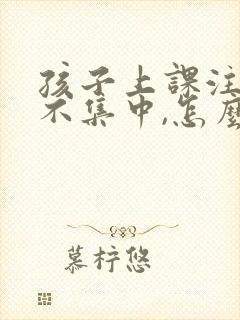 孩子上課注
不集中,怎麼
慕梓悠